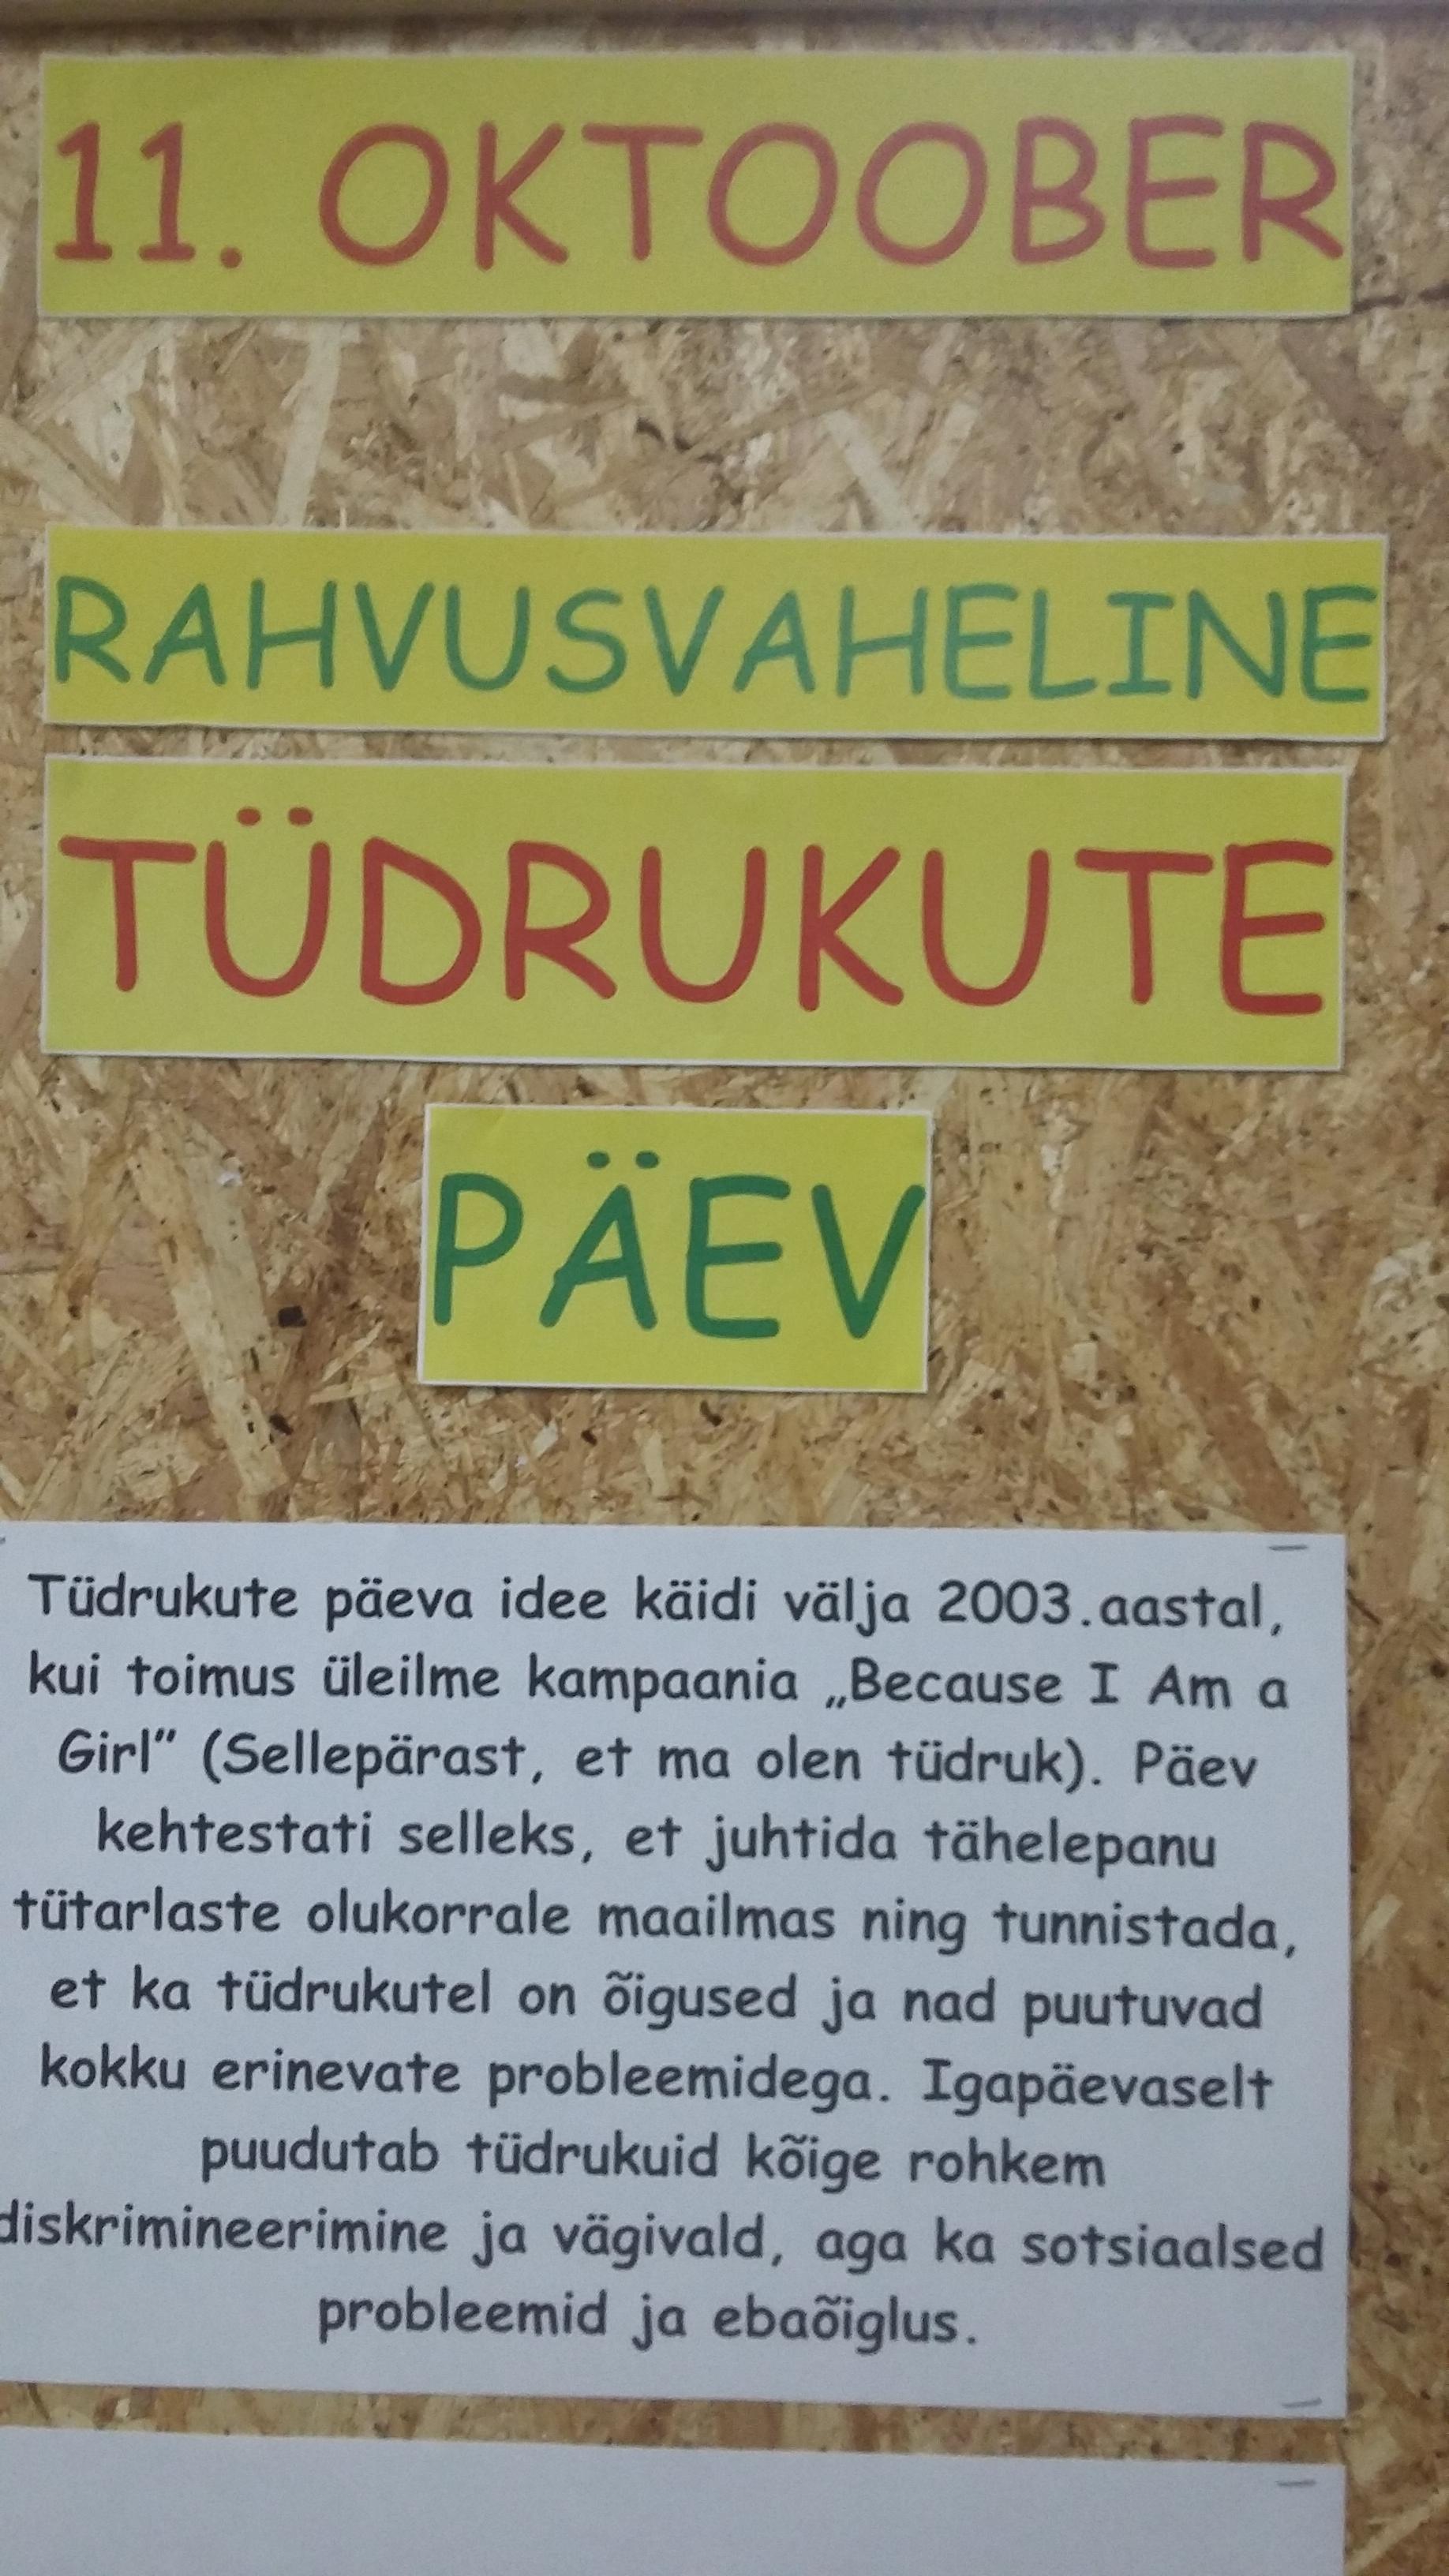 11. OKTOOBER
RAHVUSVAHELINE
TÜDRUKUTE
PÄEV
Tüdrukute päeva idee käidi välja 2003.aastal,
kui toimus üleilme kampaania „Because I Am a
Girl” (Sellepärast, et ma olen tüdruk). Päev
kehtestati selleks, et juhtida tähelepanu
tütarlaste olukorrale maailmas ning tunnistada,
et ka tüdrukutel on õigused ja nad puutuvad
kokku erinevate probleemidega. Igapäevaselt
puudutab tüdrukuid kõige rohkem
diskrimineerimine ja vägivald, aga ka sotsiaalsed
probleemid ja ebaõiglus.